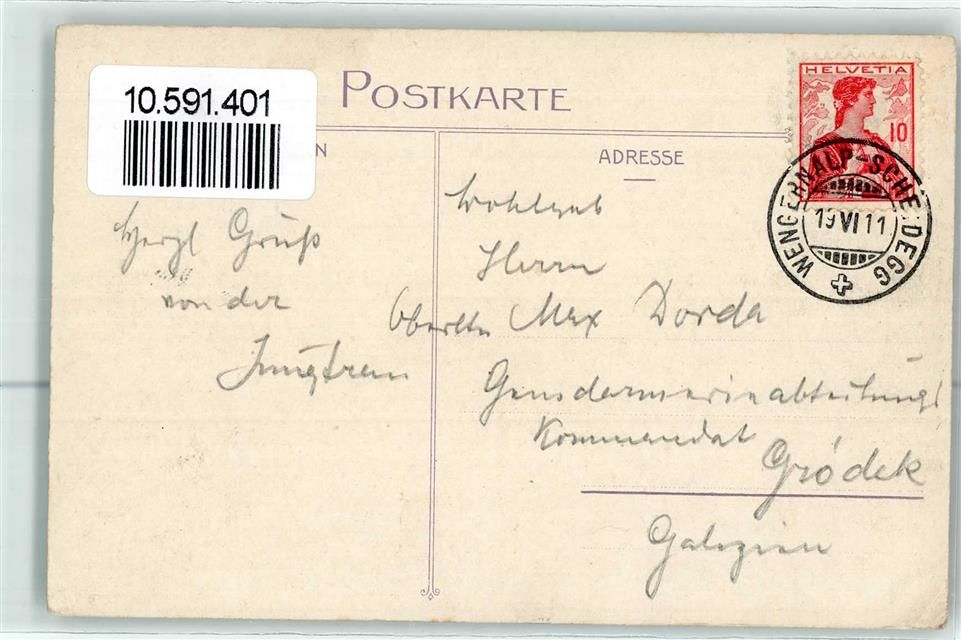 10.591.401
POSTKARTE
N
ADRESSE
HELVETIA
10
WENGERNALP-SCHEIDEGG
19 VI 11
Herzl Gruß
von der
Jungfrau
Wohlgeb
Herrn
Oberltn Max Dorda
Gensdarmerieabteilungs
Kommandat
Gródek
Galizien